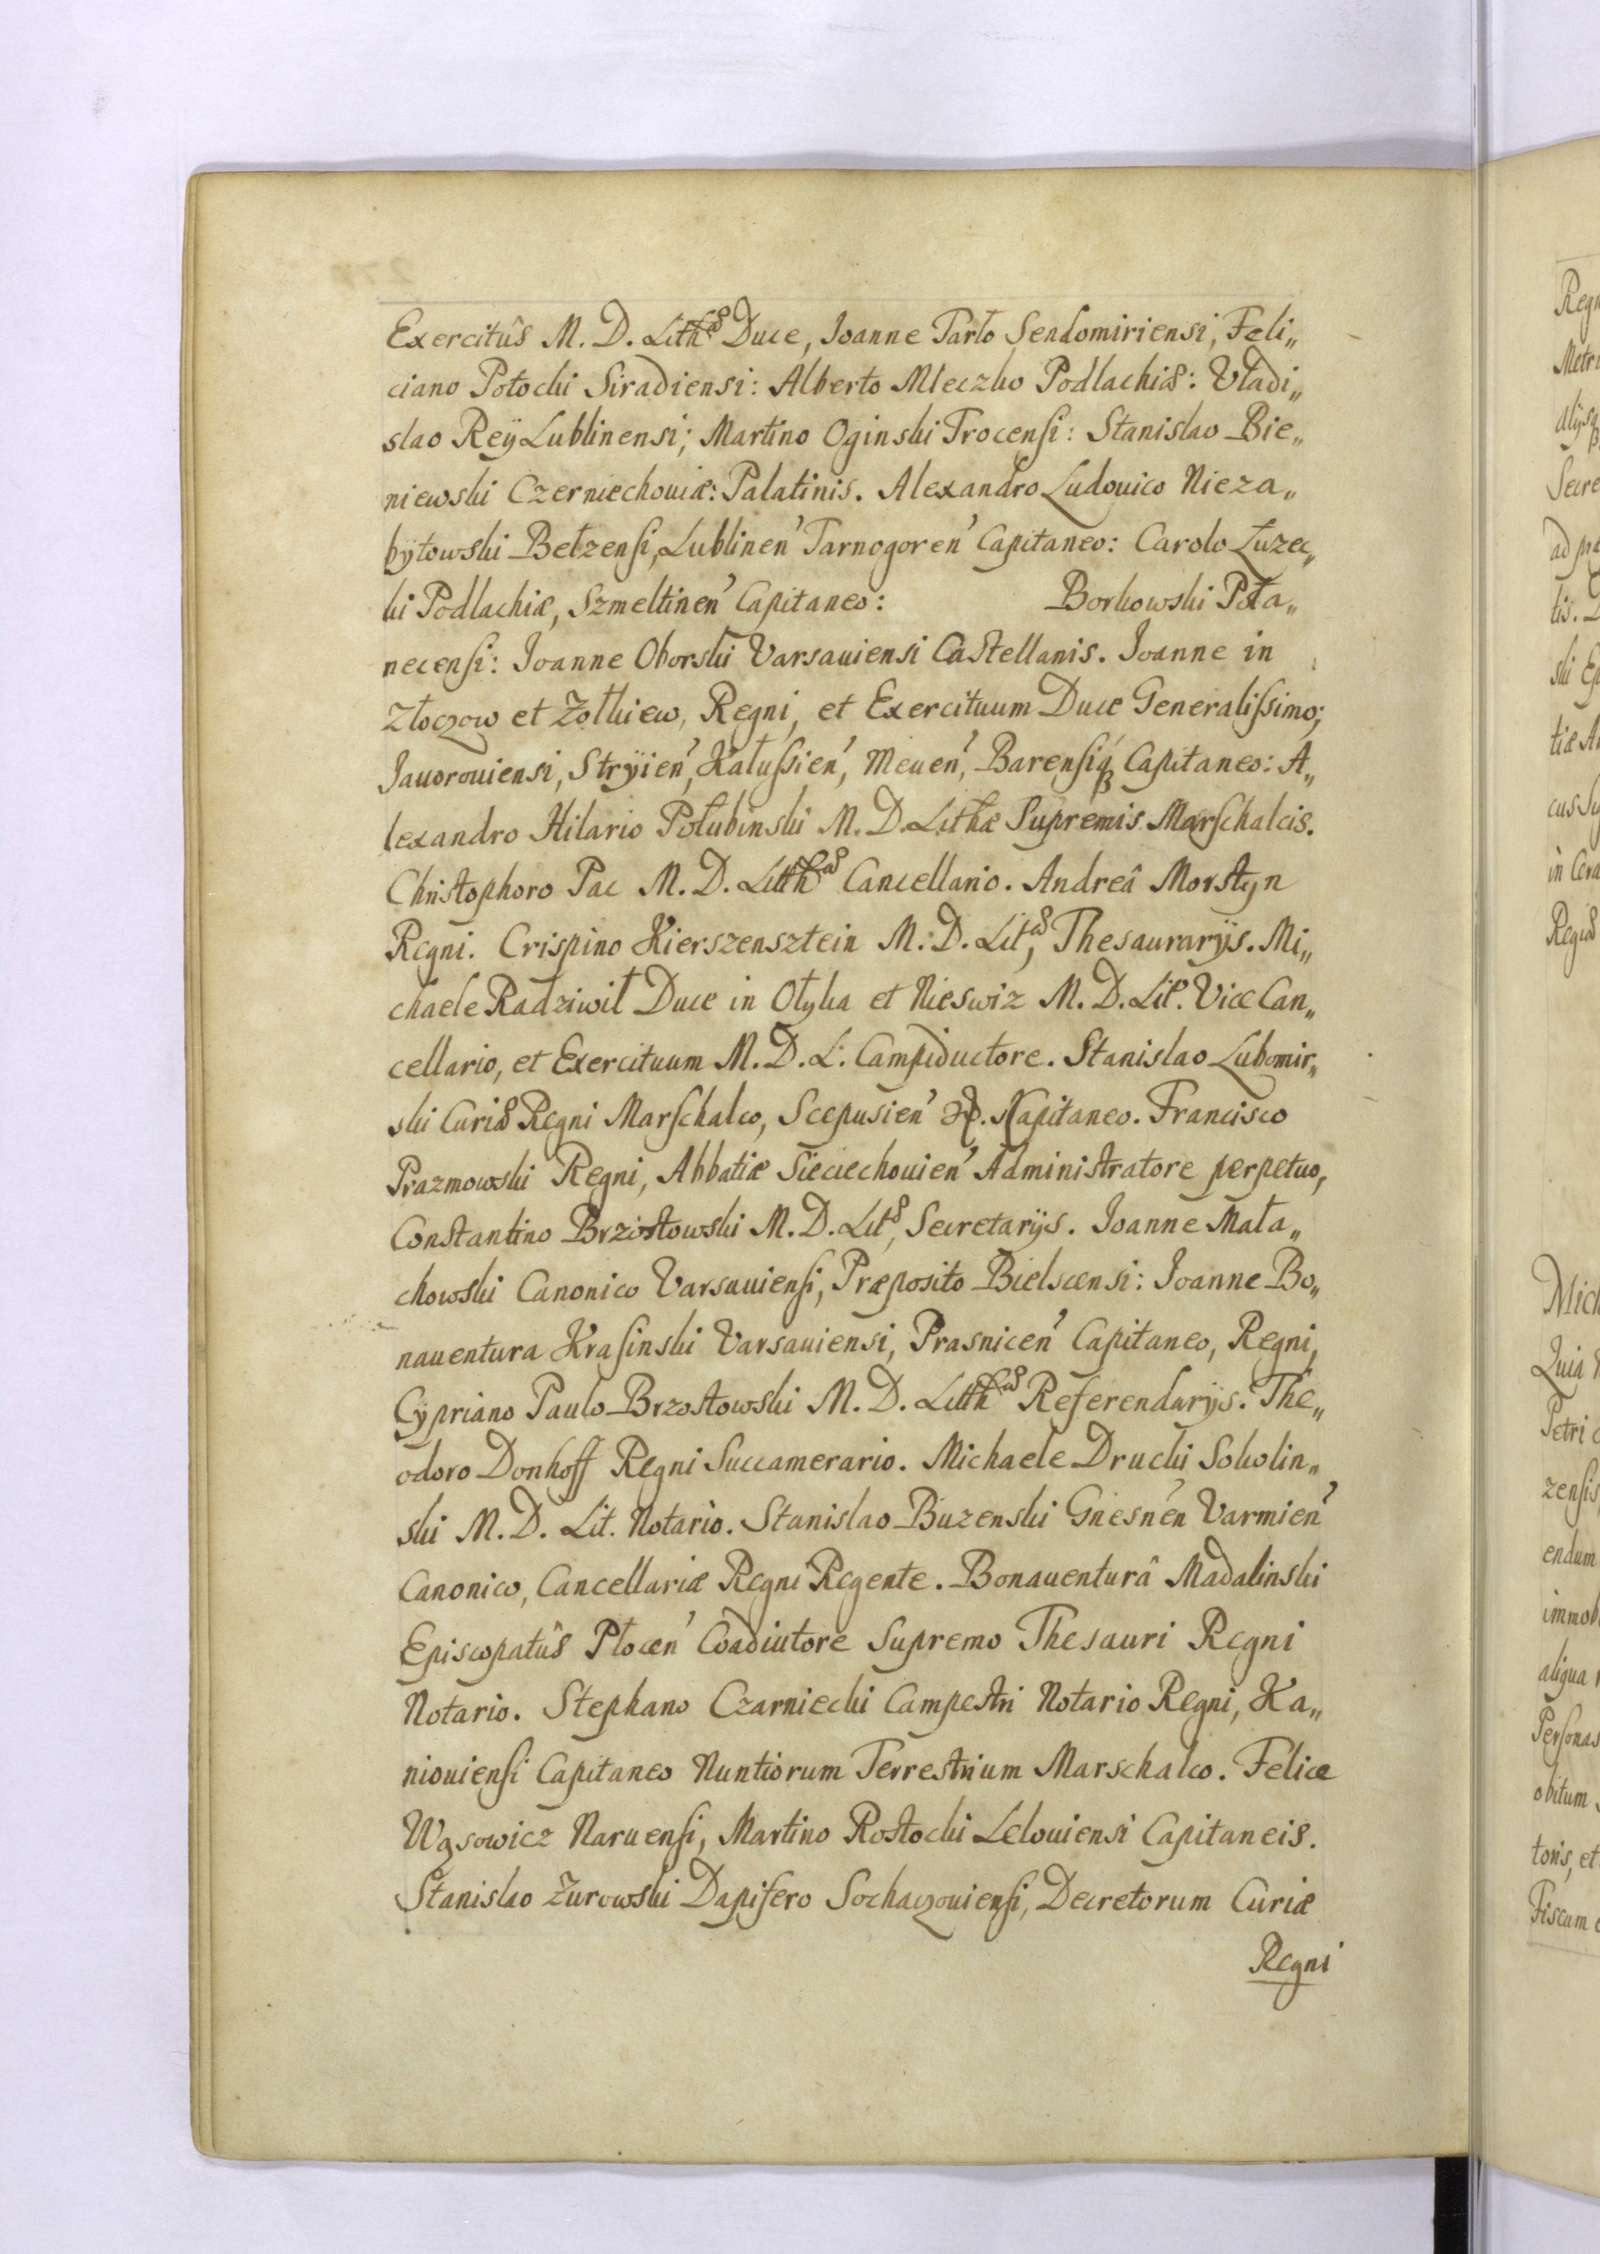 Exercitûs M. D. Lithæ Duce, Joanne Tarło Sendomiriensi, Feli„
ciano Potocki Siradiensi: Alberto Mleczko Podlachiæ: Vładi„
slao Reÿ Lublinensi; Martino Oginski Trocensi: Stanislao Bie„
niewski Czerniechouiæ: Palatinis. Alexandro Ludouico Nieza„
bÿtowski Bełzensi, Lublinen' Tarnogoren' Capitaneo: Carolo Łuzec„
ki Podlachiæ, Szmeltinen' Capitaneo: Borkowski Poła„
necensi: Joanne Oborski Varsauiensi Castellanis. Joanne in
Złoczow et Zołkiew, Regni, et Exercituum Duce Generalissimo;
Jauorouiensi, Strÿien', Kałussien', Meuen', Barensiq Capitaneo: A„
lexandro Hilario Połubinski M. D. Lithæ Supremis Marschalcis.
Christophoro Pac M. D. Litthæ Cancellario. Andreâ Morstyn
Regni. Crispino Kierszensztein M. D. Litæ, Thesaurarijs. Mi„
chaele Radziwił Duce in Olyka et Nieswiz M. D. Lit. Vice Can„
cellario, et Exercituum M. D. L. Campiductore. Stanislao Lubomir„
ski Curiæ Regni Marschalco, Scepusien' &. Capitaneo. Francisco
Prazmowski Regni, Abbatiæ Sieciechouien' Administratore perpetuo,
Constantino Brzostowski M. D. Litæ, Secretarijs. Joanne Mała„
chowski Canonico Varsauiensi, Præposito Bielscensi: Joanne Bo„
nauentura Krasinski Varsauiensi, Prasnicen' Capitaneo, Regni,
Cÿpriano Paulo Brzostowski M. D. Litthæ Referendarijs. The„
odoro Donhoff Regni Succamerario. Michaele Drucki Sokolin„
ski M. D. Lit. Notario. Stanislao Buzenski Gnesnen' Varmien'
Canonico, Cancellariæ Regni Regente. Bonauenturâ Madalinski
Episcopatûs Płocen' Coadiutore Supremo Thesauri Regni
Notario. Stephano Czarniecki Campestri Notario Regni, Ka„
niouiensi Capitaneo Nuntiorum Terrestrium Marschalco. Felice
Wąsowicz Naruensi, Martino Rostocki Lelouiensi Capitaneis.
Stanislao Zurowski Dapifero Sochaczouiensi, Decretorum Curiæ
Regni